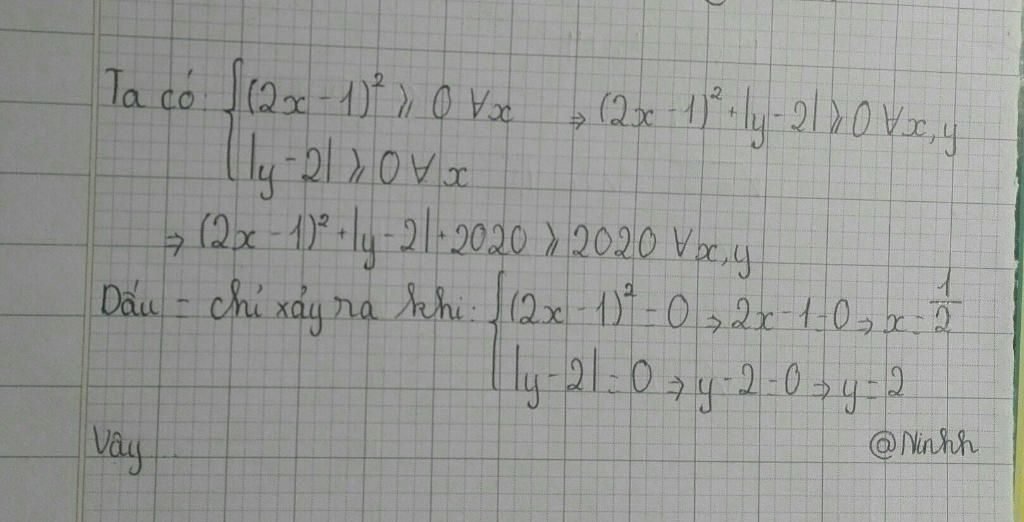 Ta có: {(2x - 1)² ≥ 0 ∀x ⇒ (2x - 1)² + |y - 2| ≥ 0 ∀x, y
|y - 2| ≥ 0 ∀x
⇒ (2x - 1)² + |y - 2| + 2020 ≥ 2020 ∀x, y
Dấu = chỉ xảy ra khi: {(2x - 1)² = 0 ⇒ 2x - 1 = 0 ⇒ x = 1/2
|y - 2| = 0 ⇒ y - 2 = 0 ⇒ y = 2
Vậy ...
@Ninhh